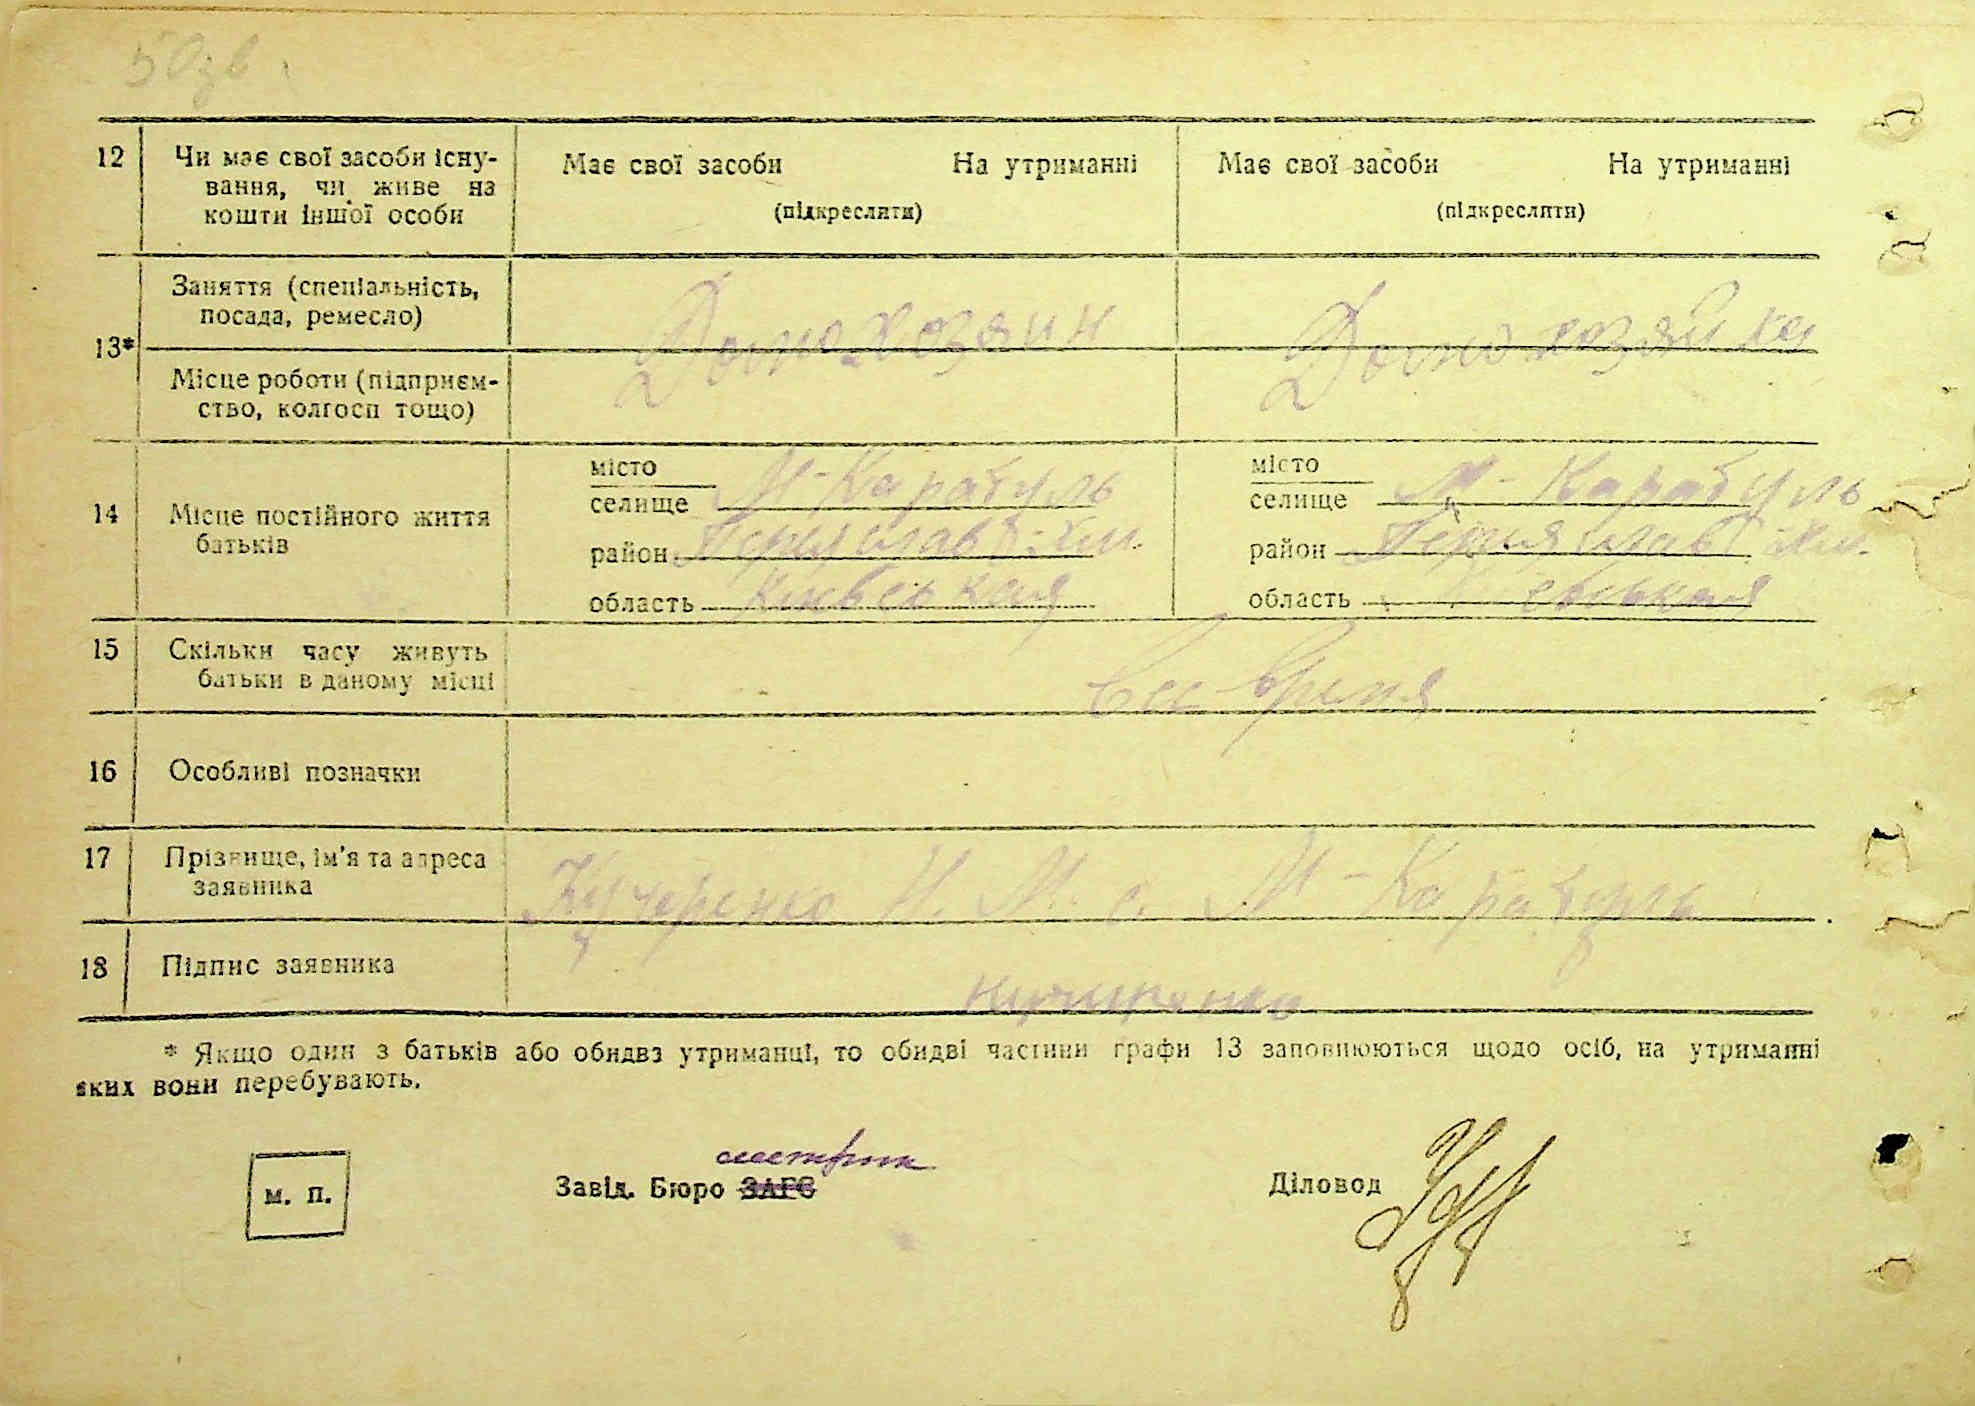 50зв.
12 Чи має свої засоби існу- Має свої засоби На утриманні Має свої засоби На утриманні
вання, чи живе на (підкреслити) (підкреслити)
кошти іншої особи
13* Заняття (спеціальність, Домохозяин Домохозяйка
посада, ремесло)
Місце роботи (підприєм-
ство, колгосп тощо)
14 Місце постійного життя місто місто
батьків селище М-Каратуль селище М-Каратуль
район Переяслав-Хм. район Переяслав-Хм.
область Киевская область
15 Скільки часу живуть Все время
батьки в даному місці
16 Особливі позначки
17 Прізвище, ім'я та адреса Кучеренко Н. М. с. М-Каратуль
заявника
18 Підпис заявника Кучеренко
* Якщо один з батьків або обидва утриманці, то обидві частини графи 13 заповнюються щодо осіб, на утриманні
яких вони перебувають.
метрик
м. п. Завід. Бюро ЗАГС Діловод